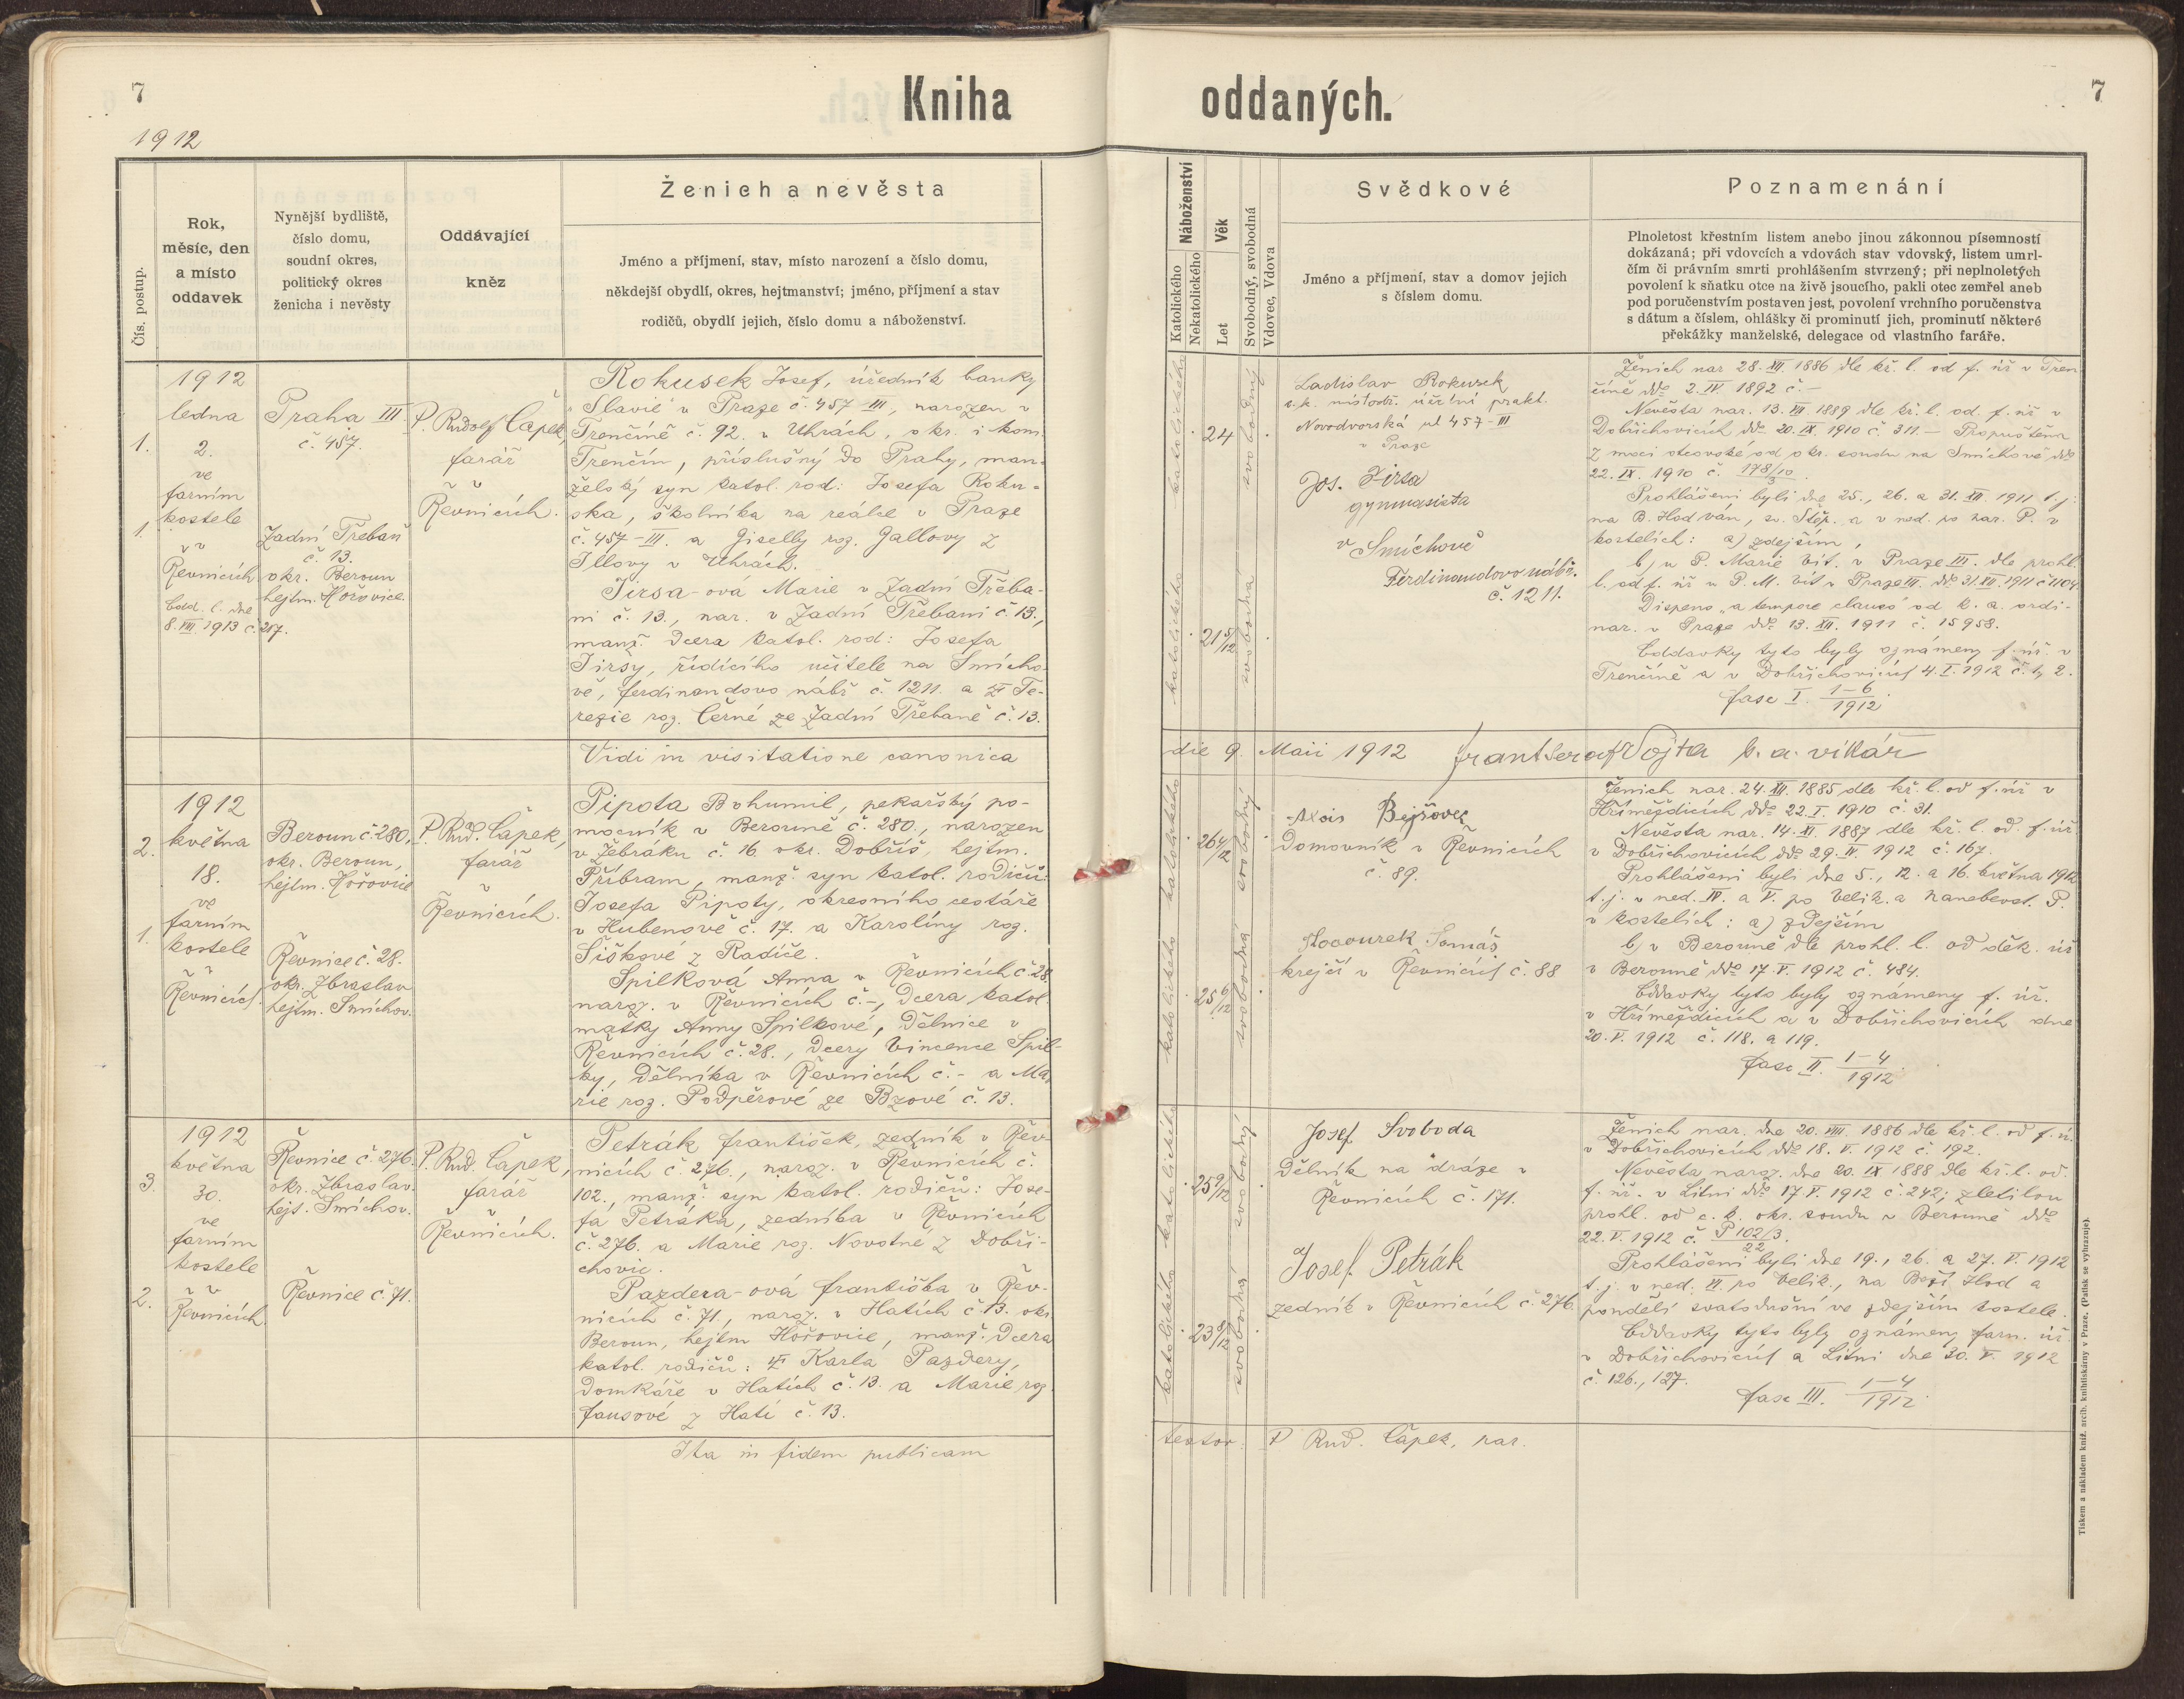 7
Kniha
1912
Čís. postup.
Rok,
měsíc, den
a místo
oddavek
Nynější bydliště,
číslo domu,
soudní okres,
politický okres
ženicha i nevěsty
Oddávající
kněz
Ženich a nevěsta
Jméno a příjmení, stav, místo narození a číslo domu,
někdejší obydlí, okres, hejtmanství; jméno, příjmení a stav
rodičů, obydlí jejich, číslo domu a náboženství.
1.
1.
1912
ledna
2.
ve
farním
kostele
v
Řevnicích
Odd. l. dne
8. VIII 1913 č. 217.
Praha III
č. 457.
Zadní Třebaň
č. 13.
okr. Beroun
hejtm. Hořovice.
P. Rudolf Čapek,
farář
v
Řevnicích.
Rokusek Josef, úředník banky
"Slavie" v Praze č. 457-III, narozen v
Trenčíně č. 92. v Uhrách, okr. i kom.
Trenčín, příslušný do Prahy, man-
želský syn katol. rod: Josefa Roku-
ska, školníka na reálce v Praze
č. 457-III. a Giselly roz. Gallovy z
Illovy v Uhrách.
Jirsa-ová Marie v Zadní Třeba-
ni č. 13., nar. v Zadní Třebani č. 13.,
manž. dcera katol. rod: Josefa
Jirsy, řídícího učitele na Smícho-
vě, ferdinandovo nábř č. 1211. a Te-
rezie roz. Černé ze Zadní Třebaně č. 13.
Vidi in visitatione canonica
2.
1.
1912
května
18.
ve
farním
kostele
v
Řevnicích.
Beroun č. 280,
okr. Beroun,
hejtm. Hořovice
Řevnice č. 28.
okr. Zbraslav
hejtm. Smíchov.
P. Rud. Čapek,
farář
v
Řevnicích.
Pipota Bohumil, pekařský po-
mocník v Berouně č. 280., narozen
v Žebráku č. 16. okr. Dobříš, hejtm.
Příbram, manž. syn katol. rodičů:
Josefa Pipoty, okresního cestáře
v Hubenově č. 17. a Karolíny roz.
Šiškové z Radíče.
Spilková Anna v Řevnicích č 28.
naroz. v Řevnicích č.-, dcera katol.
matky Anny Spilkové, dělnice v
Řevnicích č. 28., dcery Vincence Spil-
ky, dělníka v Řevnicích č. - a Ma-
rie roz. Podpěrové ze Bzové č. 13.
3.
2.
1912
května
30.
ve
farním
kostele
v
Řevnicích.
Řevnice č. 276.
okr. Zbraslav.
hejt. Smíchov.
Řevnice č. 71.
P. Rud. Čapek,
farář
v
Řevnicích.
Petrák František, zedník v Řev-
nicích č. 276., naroz. v Řevnicích č.
102., manž. syn katol. rodičů: Jose-
fa Petráka, zedníka v Řevnicích
č. 276. a Marie roz. Novotné z Dobři-
chovic.
Pazdera-ová Františka v Řev-
nicích č. 71., naroz. v Hatích č. 13. okr.
Beroun, hejtm Hořovice, manž. dcera
katol. rodičů: Karla Pazdery,
domkáře v Hatích č. 13. a Marie roz.
Fausové z Hatí č. 13.
Ita in fidem publicam
oddaných.
7
Náboženství
Katolického
Nekatolického
Věk
Let
Svobodný, svobodná
Vdovec, Vdova
Svědkové
Jméno a příjmení, stav a domov jejich
s číslem domu.
Poznamenání
Plnoletost křestním listem anebo jinou zákonnou písemností
dokázaná; při vdovcích a vdovách stav vdovský, listem umrl-
čím či právním smrti prohlášením stvrzený; při neplnoletých
povolení k sňatku otce na živě jsoucího, pakli otec zemřel aneb
pod poručenstvím postaven jest, povolení vrchního poručenstva
s dátum a číslem, ohlášky či prominutí jich, prominutí některé
překážky manželské, delegace od vlastního faráře.
katolického
24
svobodný
katolického
21 5/12
svobodná
Ladislav Rokusek
c.k. místodr. účetní prakt.
Novodvorská ul 457-III
v Praze
Jos. Jirsa
gymnasista
v Smíchově
Ferdinandovo nábř.
č. 1211.
Ženich nar 28. XII. 1886 dle kř. l. od f. úř v Tren
číně ddo 2. IV. 1892 č. -
Nevěsta nar. 13. VII. 1889 dle kř. l. od. f. úř v
Dobřichovicích ddo 20. IX. 1910 č. 311. - Propuštěna
z moci otcovské od okr. soudu na Smíchově ddo
22. IX. 1910 č. 178/10
3
Prohlášeni byli dne 25., 26. a 31. XII. 1911 t. j:
na B. Hod ván, sv. Štěp. a v ned. po nar. P. v
kostelích: a) zdejším,
b) u P. Marie Vít. v Praze III. dle prohl.
l. od f. úř u P. M. Vít v Praze III. ddo 31. XII. 1911 č 1104
Dispens „a tempore clauso" od k. a. ordi-
nar. v Praze ddo 13. XII. 1911 č. 15958.
Oddavky tyto byly oznámeny f. úř. v
Trenčíně a v Dobřichovicích 4. I. 1912 č. 1, 2.
fasc I. 1-6
1912
die 9. Maii 1912 Frant Seraf Vojta b. a. vikář
katolického
26 4/12
svobodný
katolického
25 6/12
svobodná
Alois Bejšovec
Domovník v Řevnicích
č. 89.
Tomáš
krejčí v Řevnicích č. 88
Ženich nar. 24. XII. 1885 dle kř. l. od f. úř v
Hříměždicích ddo 22. I. 1910 č. 31.
Nevěsta nar. 14. XI. 1887 dle kř. l. od. f. úř.
v Dobřichovicích ddo 29. IV. 1912 č. 167.
Prohlášeni byli dne 5., 12. a 16. května 1912
t. j. v ned. IV. a V. po Velik. a Nanebevst. P.
v kostelích: a) zdejším
b) v Berouně dle prohl. l. od děk. úř
v Berouně ddo 17. V. 1912 č. 484.
Oddavky tyto byly oznámeny f. úř.
v Hříměždicích a v Dobřichovicích dne
20. V. 1912 č. 118. a 119.
fasc II. 1-4
1912
katolického
25 9/12
svobodný
katolického
23 8/12
svobodná
Josef Svoboda
Dělník na dráze v
Řevnicích č. 171.
Josef Petrák
zedník v Řevnicích č. 276.
Ženich nar. dne 20. VIII. 1886 dle kř. l. od f. ú.
v Dobřichovicích ddo 18. V. 1912 č. 192.
Nevěsta naroz. dne 20. IX 1888 dle kř. l. od
f. úř. v Litni ddo 17. V. 1912 č. 242; zletilou
prohl. od c. k. okr. soudu v Berouně ddo
22. V. 1912 č. P 102/3.
22
Prohlášeni byli dne 19., 26. a 27. V. 1912
t. j. v ned. VI. po Velik., na Boží Hod a
pondělí svatodušní ve zdejším kostele.
Oddavky tyto byly oznámeny farn. úř.
v Dobřichovicích a Litni dne 30. V. 1912
č. 126., 127.
fasc III. 1-4
1912
testor: P Rud. Čapek, par.
Tiskem a nákladem kníž. arcib. knihtiskárny v Praze. (Patisk se vyhrazuje).